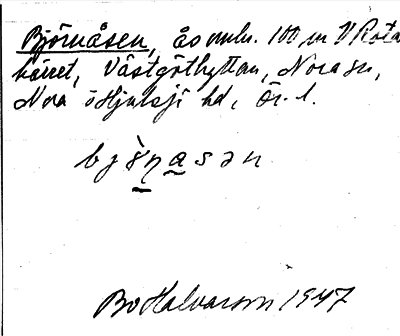 Björnåsen, Ås omkr. 100 m V Rota
kärret, Västgöthyttan, Nora sn,
Nora o Hjulsjö hd, Ör. l.
bjö̀ṇạsən
Bo Halvarson 1947